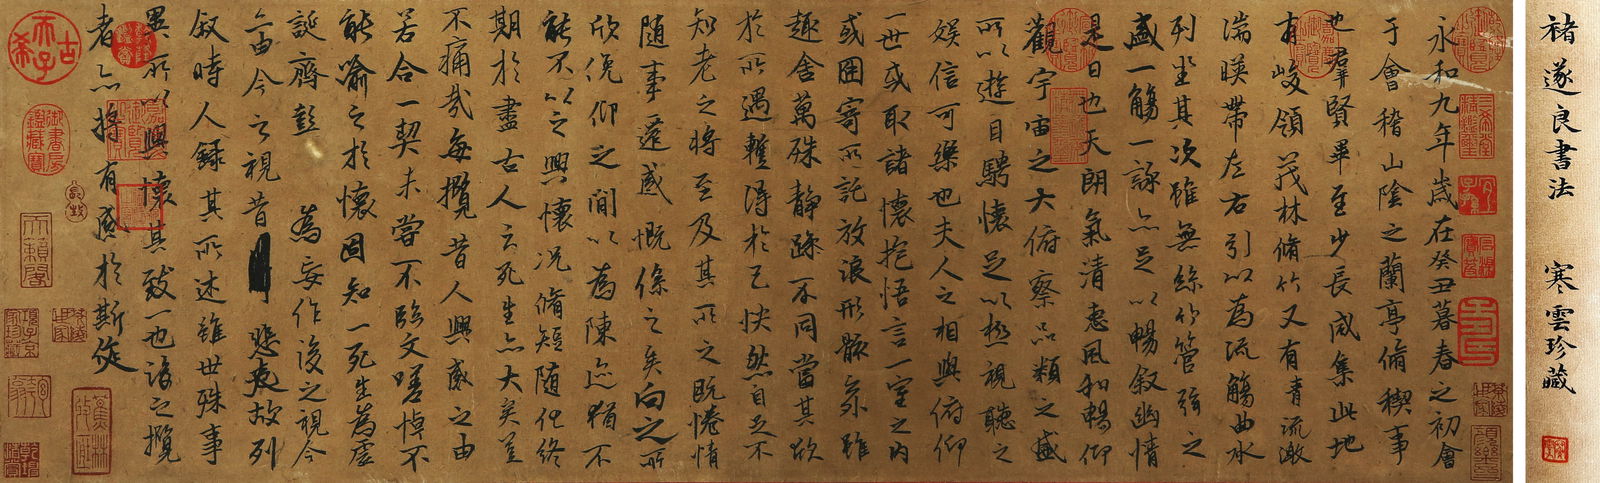 褚遂良書法 寒雲珍藏
永和九年歲在癸丑暮春之初會
于會稽山陰之蘭亭脩稧事
也羣賢畢至少長咸集此地
有峻領茂林脩竹又有清流激
湍暎帶左右引以為流觴曲水
列坐其次雖無絲竹管弦之
盛一觴一詠亦足以暢敘幽情
是日也天朗氣清惠風和暢仰
觀宇宙之大俯察品類之盛
所以遊目騁懷足以極視聽之
娛信可樂也夫人之相與俯仰
一世或取諸懷抱悟言一室之內
或因寄所託放浪形骸雖
趣舍萬殊靜躁不同當其欣
於所遇蹔得於己快然自足不
知老之將至及其所之既惓情
隨事遷感慨係之矣向之所
欣俛仰之閒以為陳迹猶不
能不以之興懷況脩短隨化終
期於盡古人云死生亦大矣豈
不痛哉每攬昔人興感之由
若合一契未嘗不臨文嗟悼不
能喻之於懷固知一死生為虛
誕齊彭為妄作後之視今
亦由今之視昔悲夫故列
敘時人錄其所述雖世殊事
異所以興懷其致一也後之攬
者亦將有感於斯文
古希天子
御書房鑑藏寶
天籟閣
項子京家珍藏